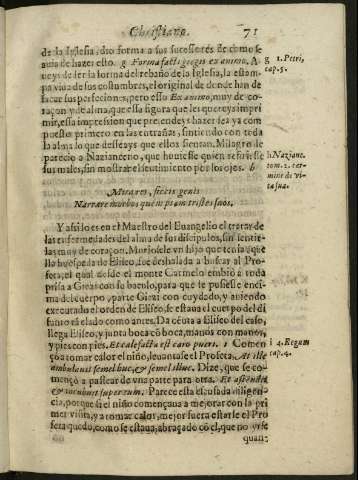 Christiano. 71
de la Iglesia, dio forma a sus sucessores de como se
auia de hazer esto. g Forma facti gregis ex animo. A-
g 1. Petri,
cap. 5.
ueys de ser la forma del rebaño de la Iglesia, la estam-
pa viua de sus costumbres, el original de donde han de
sacar sus perfeciones, pero esso Ex animo, muy de co-
raçon y de alma, que essa figura que les quereys impri-
mir, essa impression que pretendeys hazer sea ya com
puesto primero en las entrañas, sintiendo con toda
la alma lo que desseays que ellos sientan. Milagro le
parecio a Nazianceno, que huuiesse quien refiriesse
sus males, sin mostrar el sentimiento por los ojos. h
h Nazianc.
tom. 2. car-
mine de vi-
ta sua.
Mirares, siccis genis
Narrare morbos quem piam tristes suos.
Y assi lo es en el Maestro del Euangelio el tratar de
las enfermedades del alma de sus discipulos, sin sentir-
las muy de coraçon. Muriosele vn hijo que tenia aque
lla huespeda de Eliseo, fue deshalada a buscar al Pro-
feta, el qual desde el monte Carmelo embiò a toda
prisa a Giezi con su baculo, para que le pusiesse enci-
ma del cuerpo, parte Giezi con cuydado, y auiendo
executado el orden de Eliseo, se estaua el cuerpo del di
funto tã elado como antes. Da cuẽta a Eliseo del caso,
llega Eliseo, y junta boca cõ boca, manos con manos,
y pies con pies. Et calefacta est caro pueri. i Comen-
i 4. Regum
cap. 4.
ço a tomar calor el niño, leuantase el Profeta. At ille
ambulauit semel huc, & semel illuc. Dize, que se co-
mençò a passear de vna parte para otra. Et ascendit
& incubuit super eum. Parece esta escusada diligen-
cia, porque si el niño començaua a mejorar con la pri
mer visita, y a tomar calor, mejor fuera estarse el Pro
feta quedo, como se estaua, abraçado cõ el, que no yr-
quan-